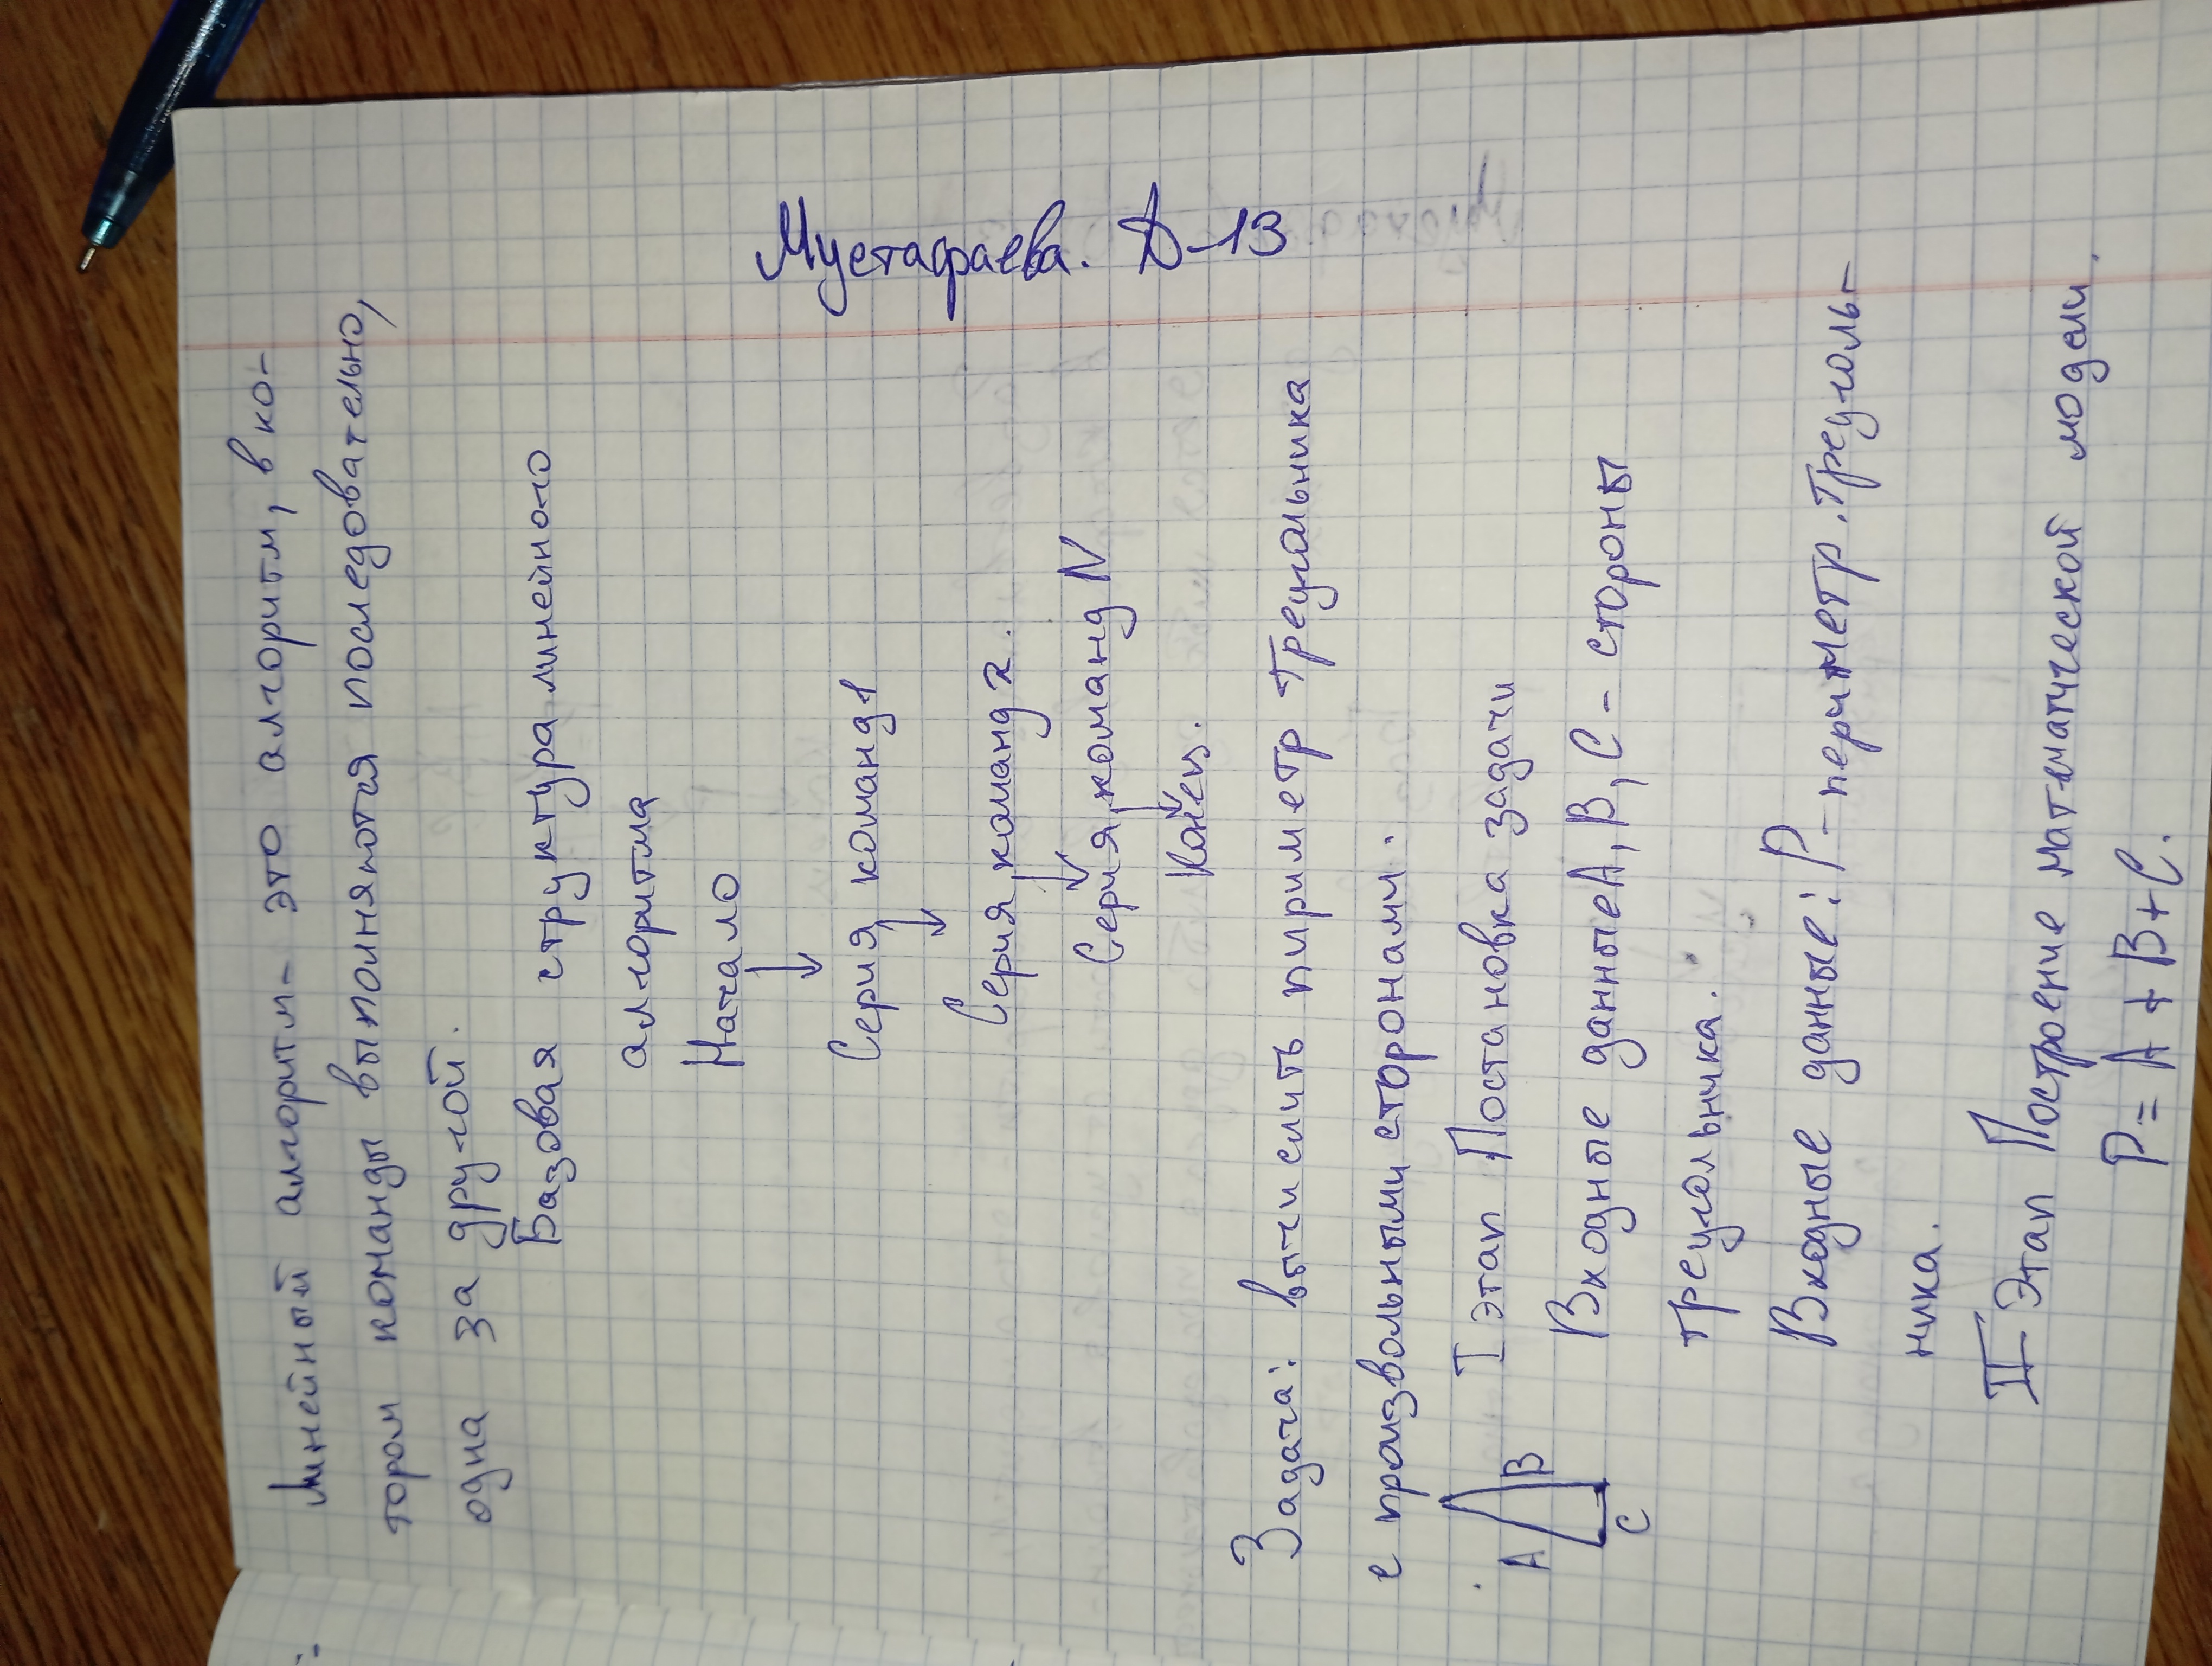 Линейный алгоритм - это алгоритм, в ко-
тором команды выполняются последовательно,
одна за другой.
Базовая структура линейного
алгоритма
Начало
Серия команд 1
Серия команд 2.
Серия команд N
Конец.
Мустафаева. Д-13
Задача: вычислить пириметр треугольника
с произвольными сторонами.
I этап Постановка задачи
A B
C
Входные данные A, B, C - стороны
треугольника.
Входные данные: P - периметр. треуголь-
ника.
II Этап Построение математической модели.
P = A + B + C.